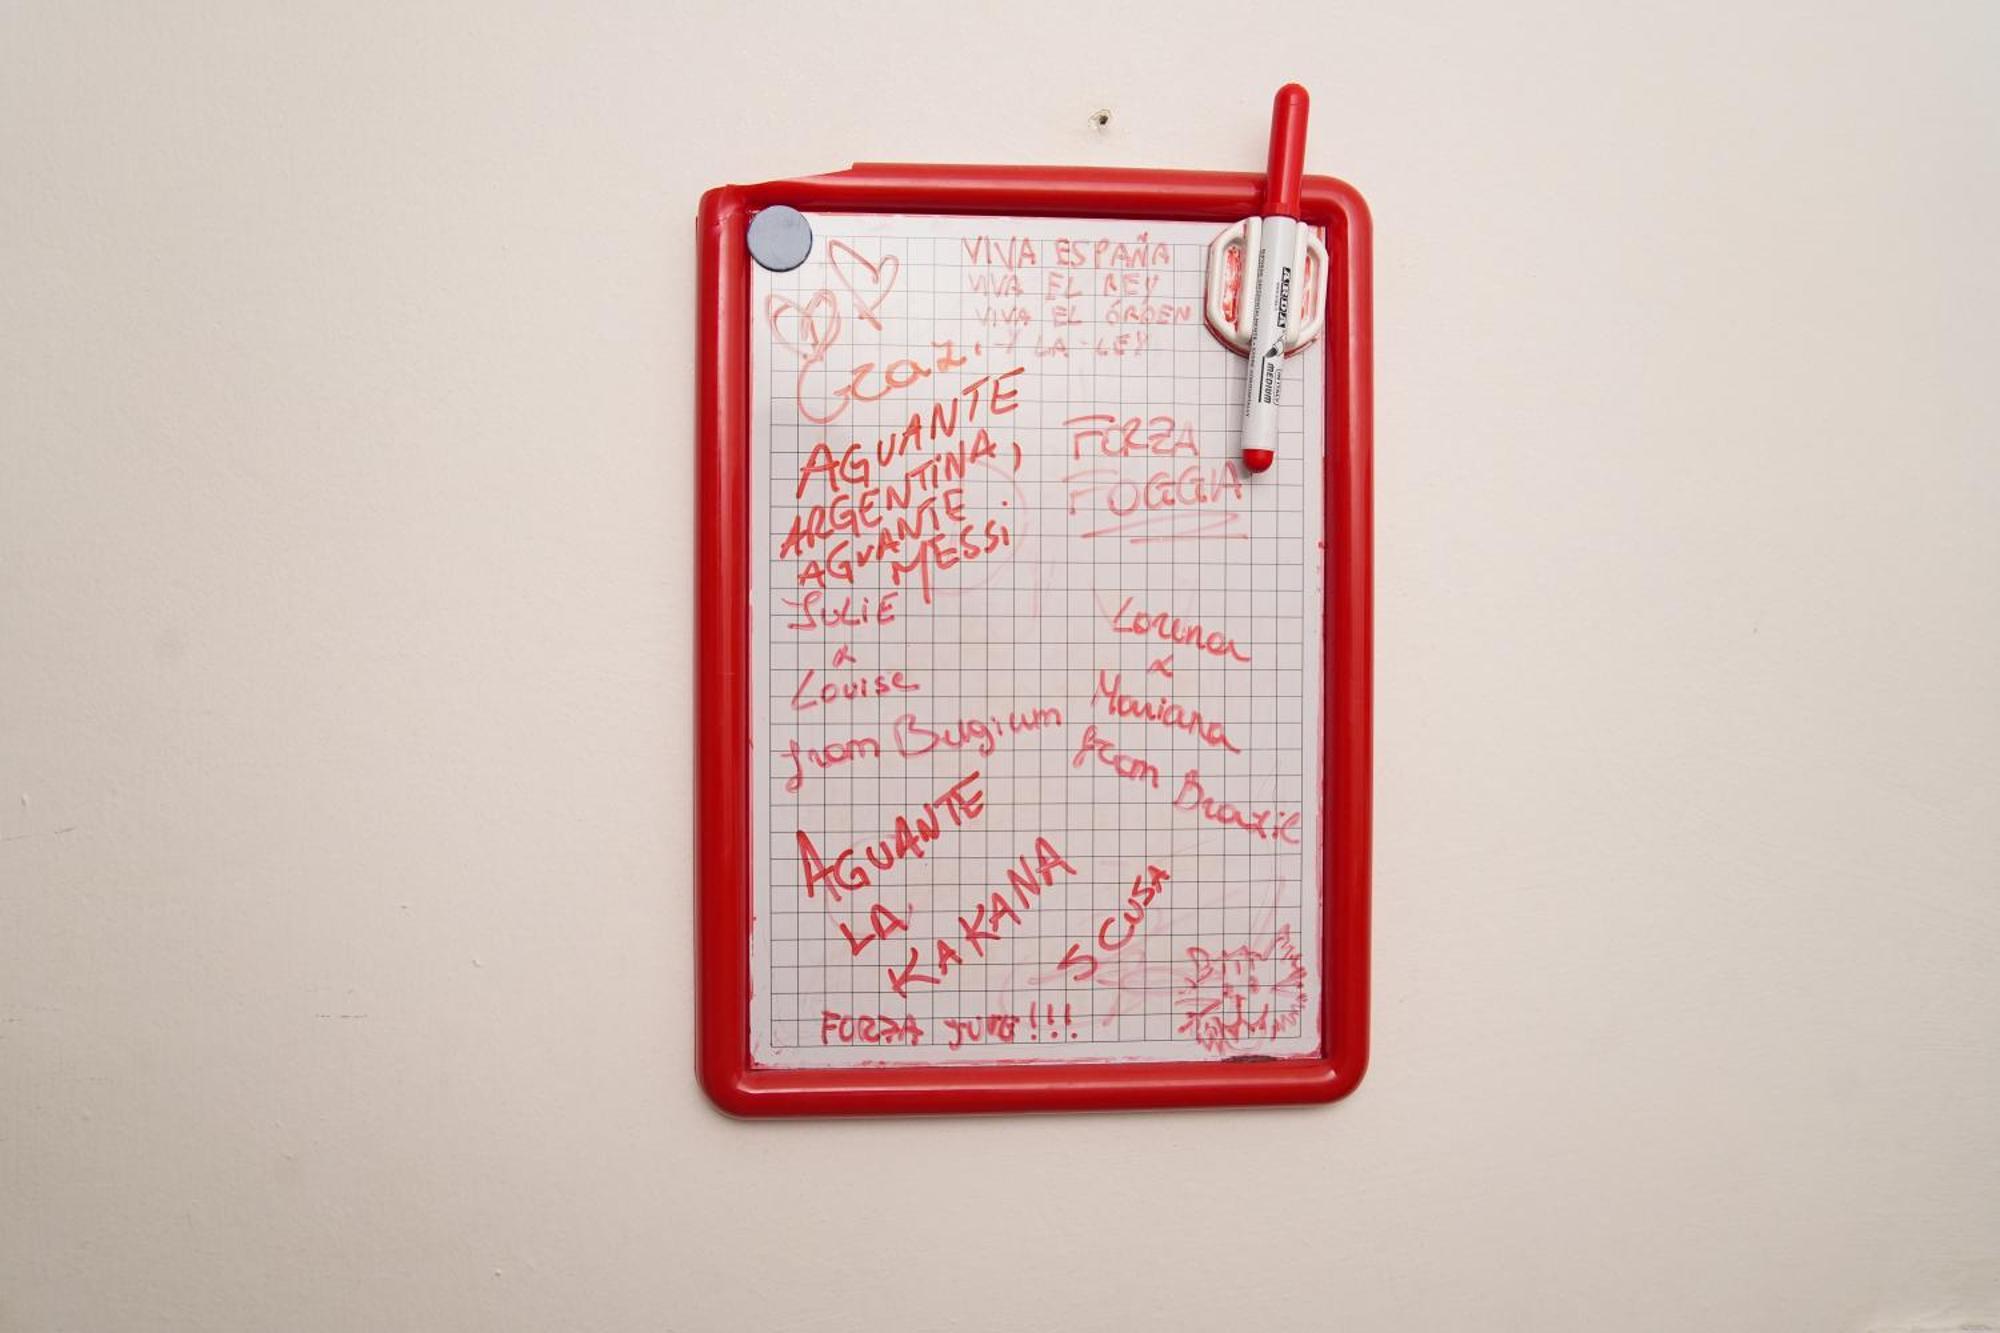 VIVA ESPAÑA
VIVA EL REY
VIVA EL ÓRDEN
Y LA LEY
Graz
AGUANTE
ARGENTINA,
AGUANTE
MESSI
FORZA
FOGGIA
JULIE
&
Louise
from Belgium
Lorena
&
Mariana
from Brazil
AGUANTE
LA
KAKANA
SCUSA
FORZA JUVE!!!
MEDIUM